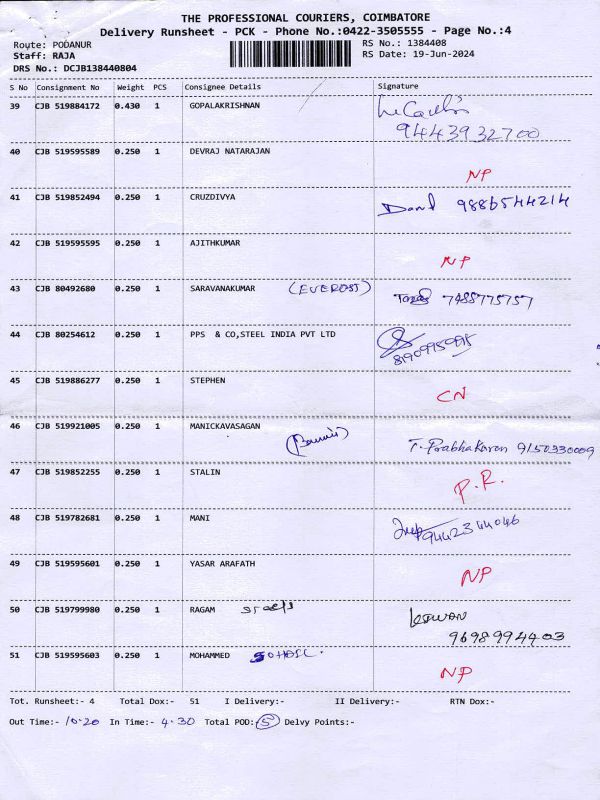 THE PROFESSIONAL COURIERS, COIMBATORE
Delivery Runsheet - PCK - Phone No.:0422-3505555 - Page No.:4
Route: PODANUR RS No.: 1384408
Staff: RAJA RS Date: 19-Jun-2024
DRS No.: DCJB138440804
S No Consignment No Weight PCS Consignee Details Signature
39 CJB 519884172 0.430 1 GOPALAKRISHNAN
9443932700
40 CJB 519595589 0.250 1 DEVRAJ NATARAJAN
NP
41 CJB 519852494 0.250 1 CRUZDIVYA
9886544214
42 CJB 519595595 0.250 1 AJITHKUMAR
NP
43 CJB 80492680 0.250 1 SARAVANAKUMAR (EVEREST) 7488775757
44 CJB 80254612 0.250 1 PPS & CO,STEEL INDIA PVT LTD
8190995995
45 CJB 519886277 0.250 1 STEPHEN
CN
46 CJB 519921005 0.250 1 MANICKAVASAGAN
T. Prabhakaran 9150330009
47 CJB 519852255 0.250 1 STALIN
P.R.
48 CJB 519782681 0.250 1 MANI
9442344046
49 CJB 519595601 0.250 1 YASAR ARAFATH
NP
50 CJB 519799980 0.250 1 RAGAM
9698994403
51 CJB 519595603 0.250 1 MOHAMMED
NP
Tot. Runsheet:- 4 Total Dox:- 51 I Delivery:- II Delivery:- RTN Dox:-
Out Time:- 10.20 In Time:- 4.30 Total POD:- 5 Delvy Points:-